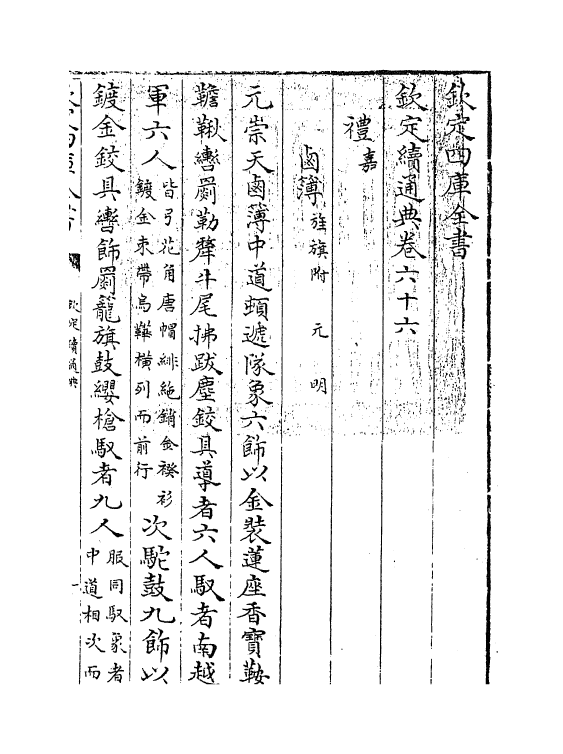 欽定四庫全書
欽定續通典卷六十六
禮嘉
鹵簿旌旗附　元　明
元崇天鹵簿中道頓遞隊象六飾以金裝蓮座香寶鞍
韂鞦轡罽勒犛牛尾拂跋塵鉸具導者六人馭者南越
軍六人皆弓花角唐帽緋絁銷金䙆衫鍍金束帶烏鞾橫列而前行次駝鼓九飾以
鍍金鉸具轡飾罽籠旗鼓纓槍馭者九人服同馭象者中道相次而
欽定續通典
一